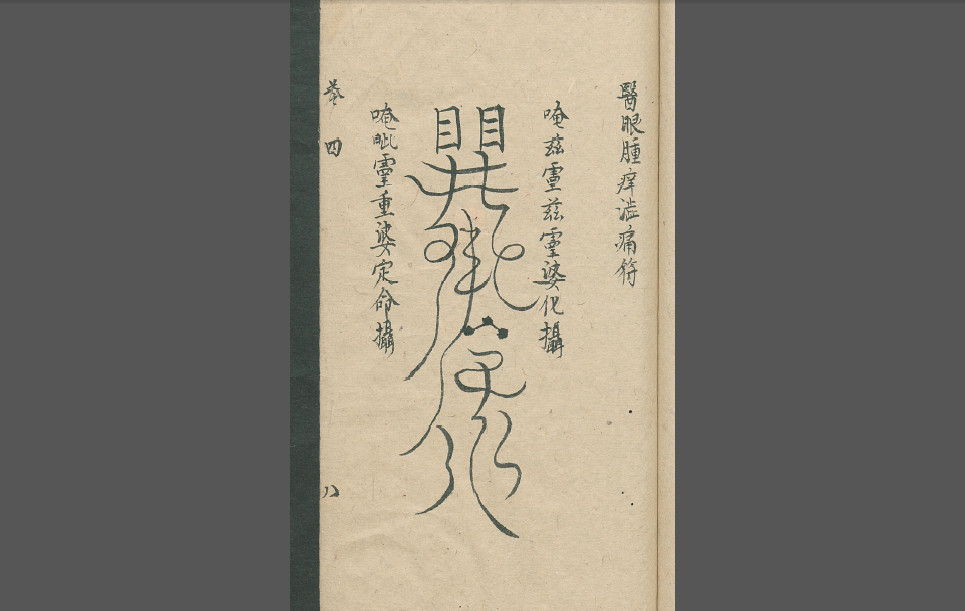 醫眼腫痒澁痛符
唵茲靈茲靈婆化攝
唵毗靈重婆定命攝
卷四
八